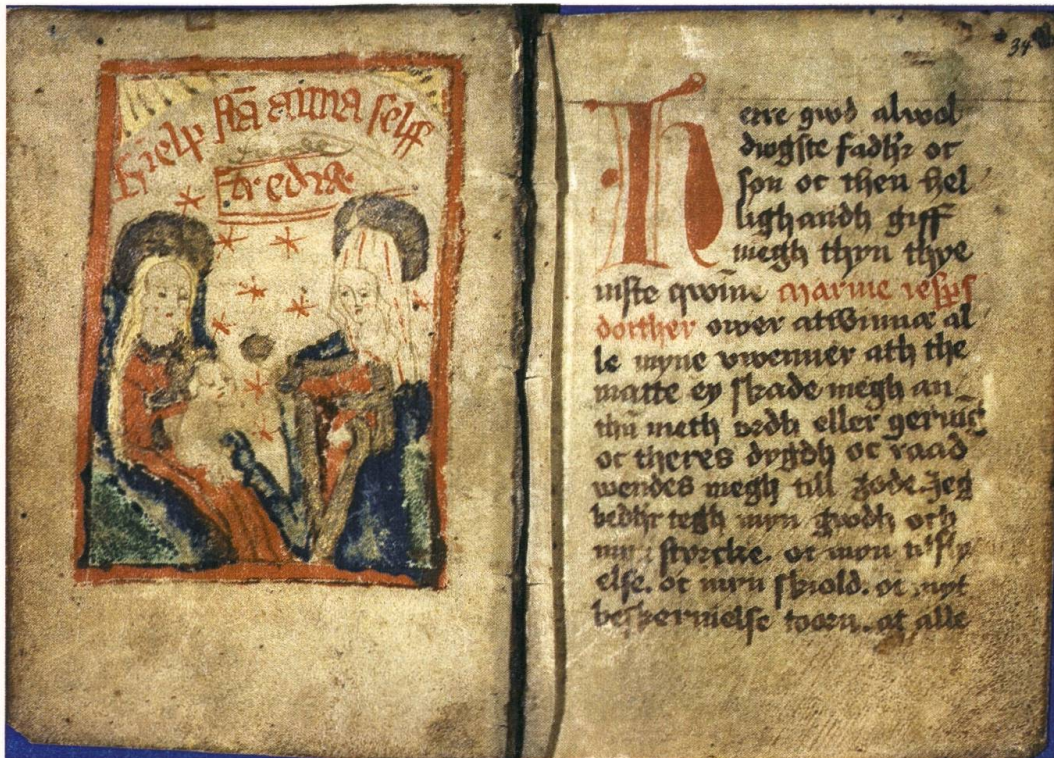 hielp sctā anna selff
tredie
34
Herre gwd alwol
dwgste fadhr oc
søn oc then hel
lighandh giff
megh thyn thye
niste qwīne marine iesps
dotther ower atwinnæ al
le myne vwenner ath the
matte ey skade megh an
thū meth ordh eller gerning
oc theres dygdh oc raad
wendes megh till gode. Jeg
bedhr tegh myn gwdh och
myn styrcke. oc myn tilfly
else. oc myn skiold. oc myt
beskermelse toorn. at alle